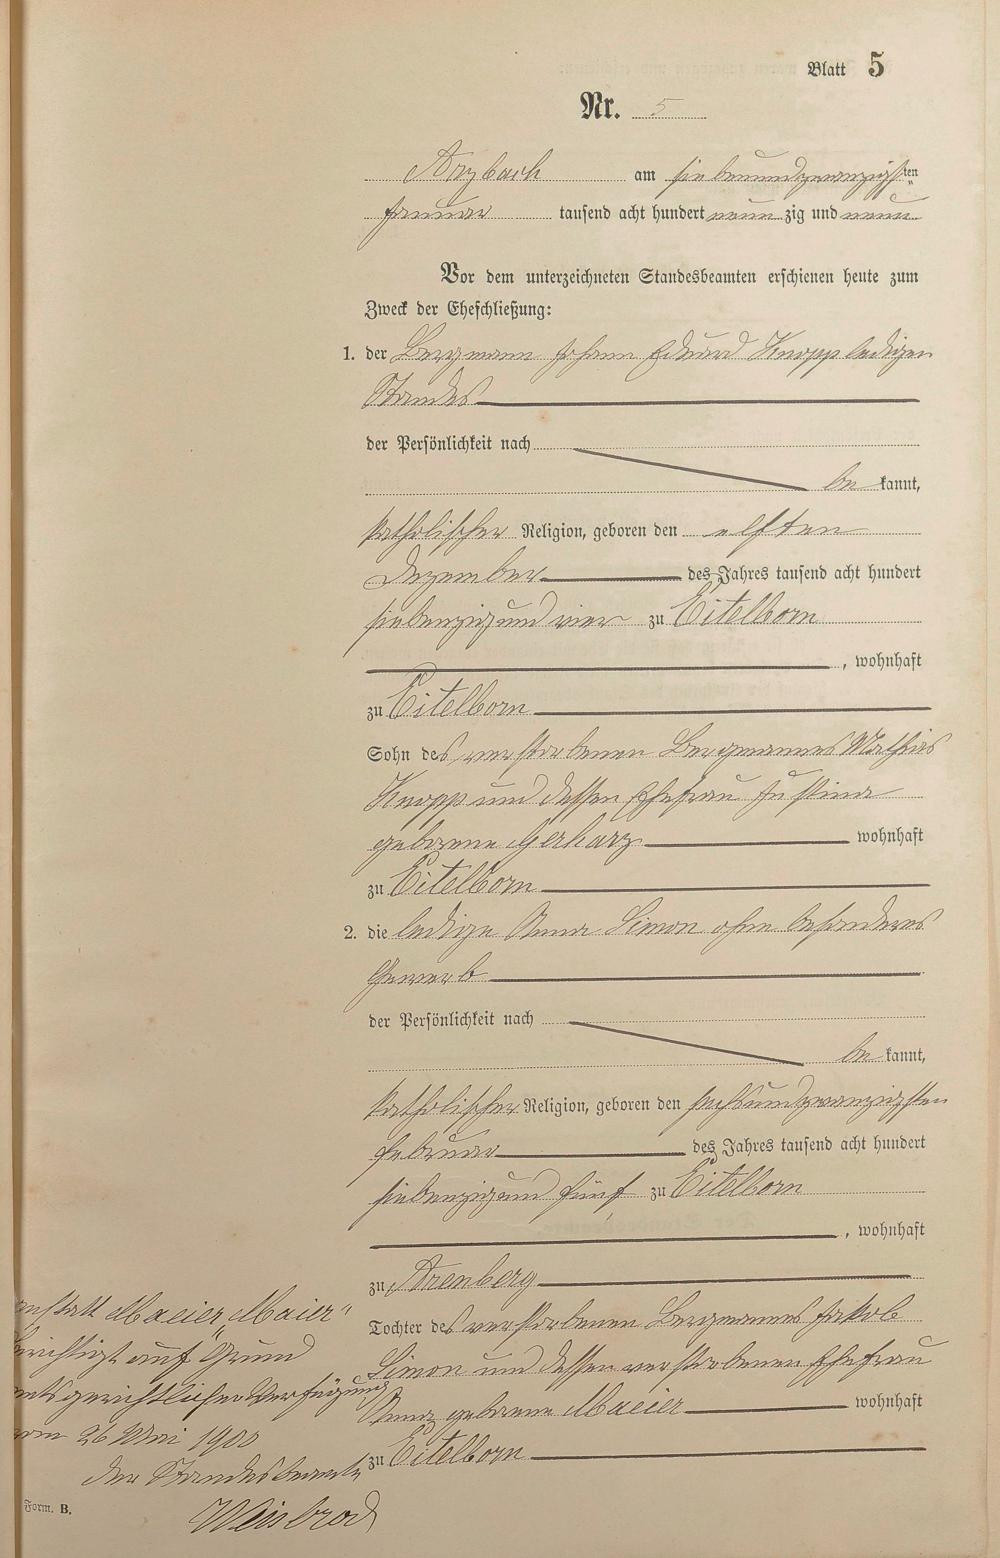 Blatt 5
Nr. 5
Arzbach am siebenundzwanzigsten
Januar tausend acht hundert neunzig und neun
Vor dem unterzeichneten Standesbeamten erschienen heute zum
Zweck der Eheschließung:
1. der Bergmann Johann Eduard Knopp ledigen
Standes
der Persönlichkeit nach
be kannt,
katholischer Religion, geboren den elften
Dezember des Jahres tausend acht hundert
siebenzig und vier zu Eitelborn
, wohnhaft
zu Eitelborn
Sohn des verstorbenen Bergmannes Mathias
Knopp und dessen Ehefrau Justina
geborene Gerharz wohnhaft
zu Eitelborn
2. die ledige Anna Simon ohne besonderes
Gewerb
der Persönlichkeit nach
be kannt,
katholischer Religion, geboren den sechsundzwanzigsten
Februar des Jahres tausend acht hundert
siebenzig und fünf zu Eitelborn
, wohnhaft
zu Arenberg
Tochter des verstorbenen Bergmannes Jakob
Simon und dessen verstorbenen Ehefrau
geborene Maeier wohnhaft
zu Eitelborn
anstatt Maeier „Maier"
berichtigt auf Grund
amtsgerichtlicher Verfügung
vom 26 Mai 1900
Der Standesbeamte
Weisbrod
Form. B.